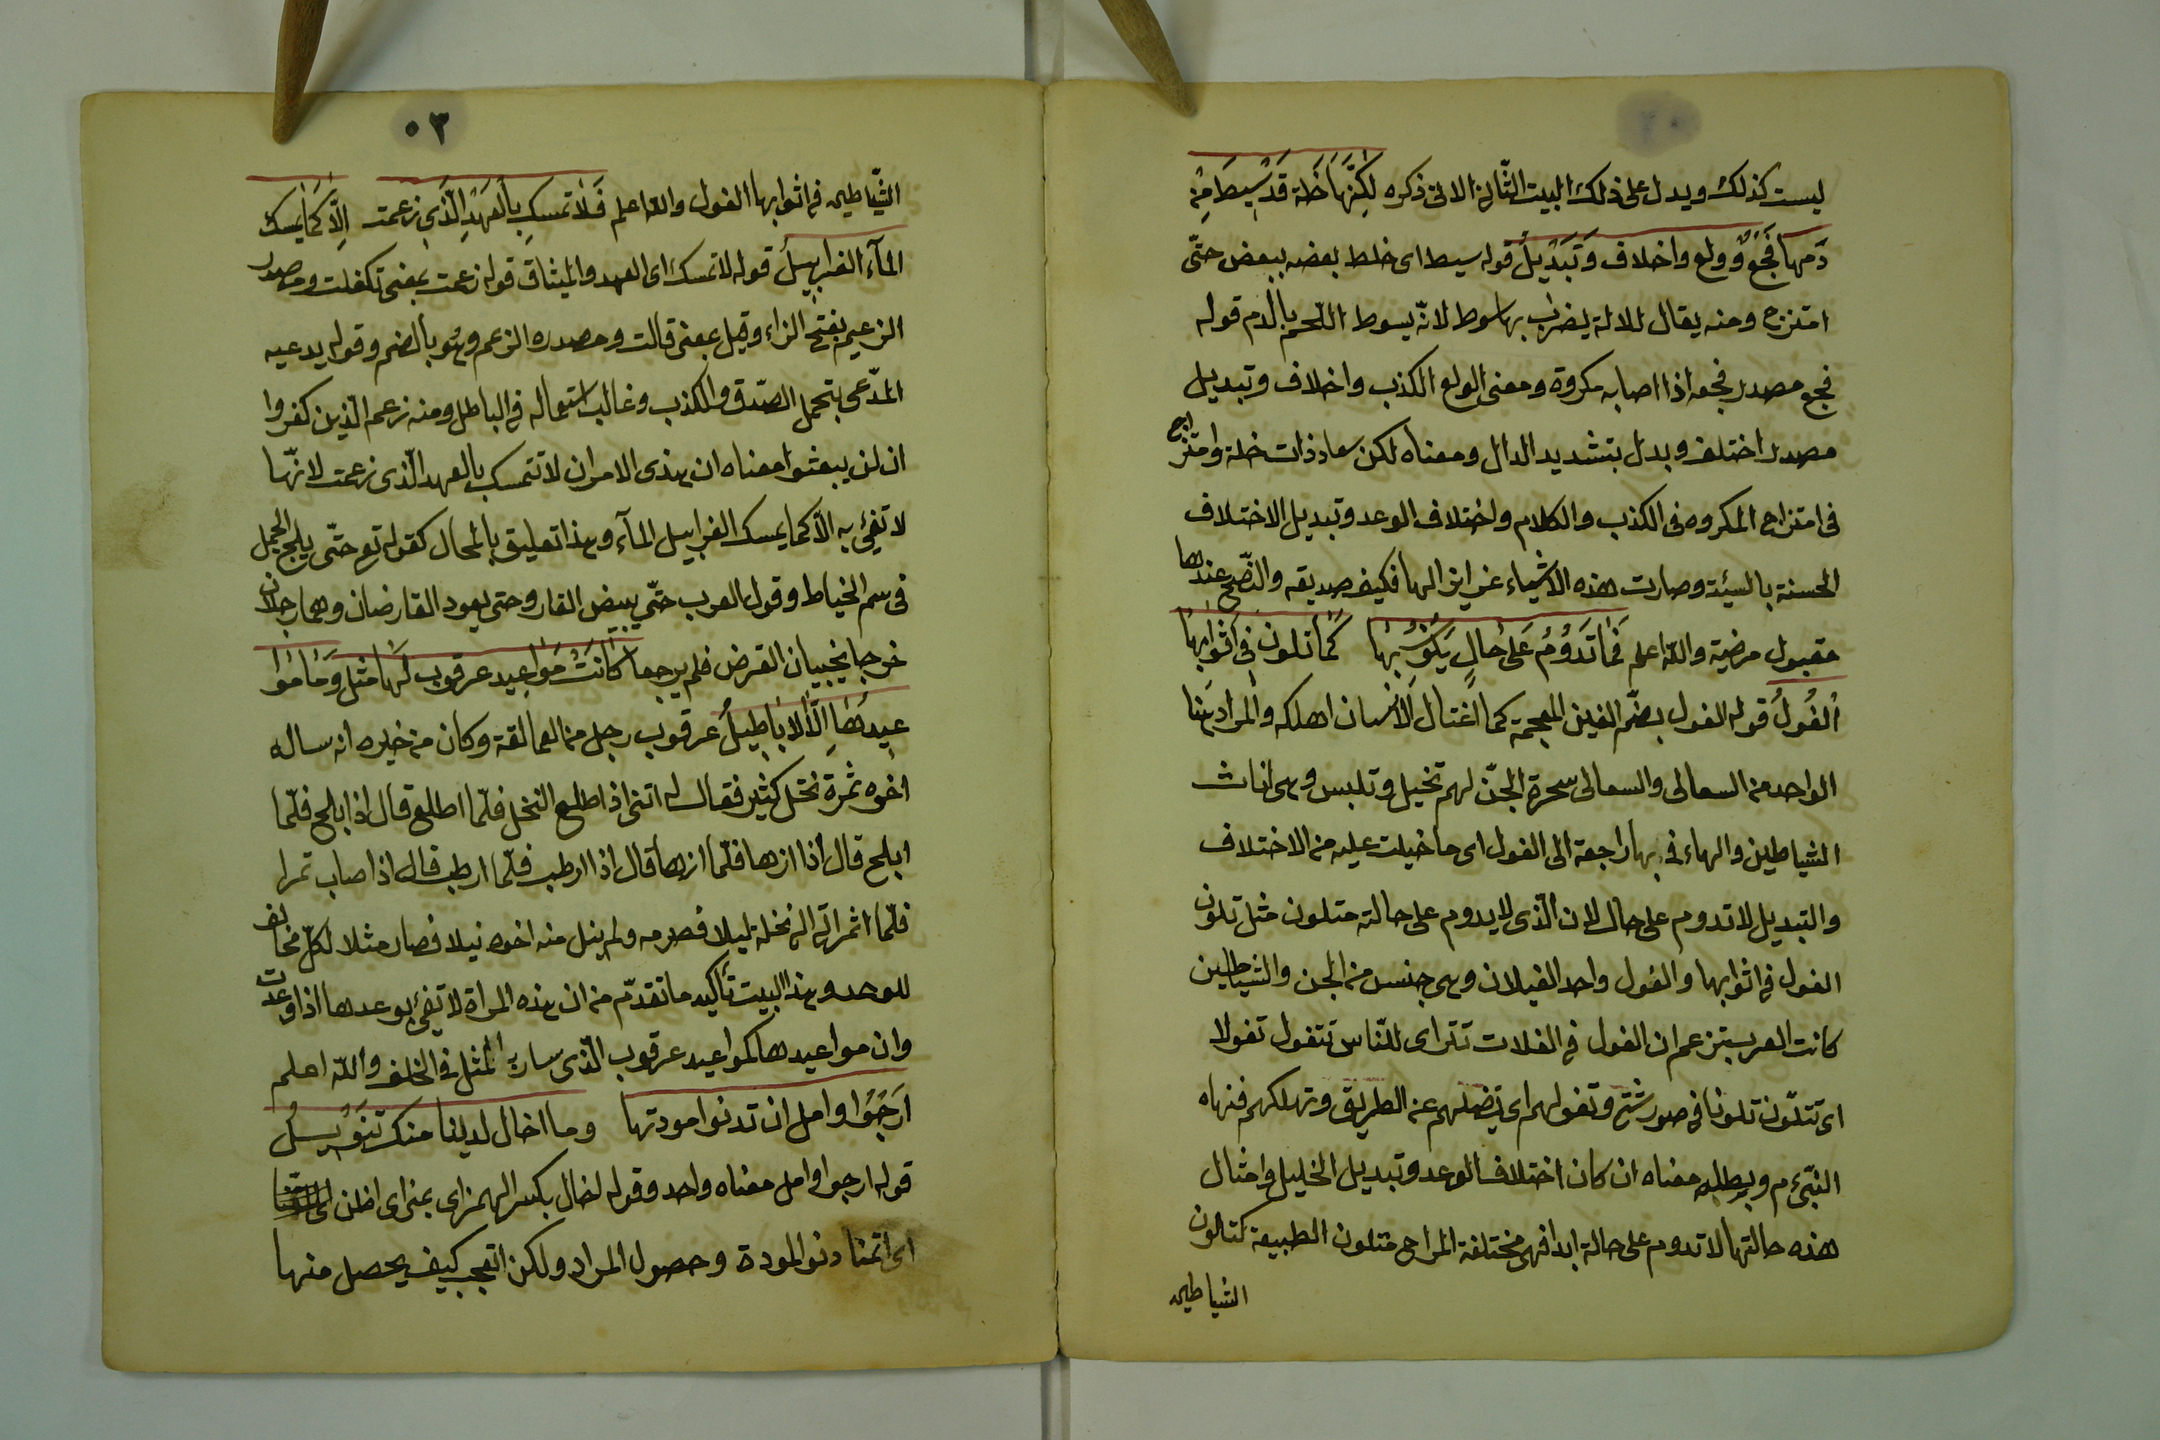 ليست كذلك ويدل على ذلك البيت الثاني الاتى ذكره لٰكِنَّهَا خَلة قَدْ سِيطَ مِنْ
دَمِهَا فَجْعٌ وولع واخلاف وَتَبْدِيلُ قوله سيط اى خلط بعضه ببعض حتّى
امتزج ومنه يقال للالة يضرب بها سوط لانّه يسوط اللّحم بالدم قوله
فجع مصدر فجعه اذا اصابه مكروة ومعنى الولع الكذب واخلاف وتبديل
مصدر اختلف وبدل بتشديد الدال ومعناه لكن سعاد ذات خلة وامتزاج
فى امتزاج المكروه فى الكذب والكلام واختلاف الوعد وتبديل الاختلاف
الحسنة بالسيئة وصارت هذه الاشياء غرايز الها فكيف صديقه والنّصح عندها
مقبول مرضية واللّه اعلم فَمَا تَدَوُمُ عَلىٰ حٰالٍ يَكُوُنُ بِهٰا كَمٰا تلون فِى اَثْوٰابِهٰا
اُلْغُولُ قوله الغول بضمّ الغين المعجمة كما اغتال الانسان اهلكه والمراد هنا
الواحد من السعالى والسعالى سحرة الجنّ لهم تخيل وتلبس وهى اناث
الشياطين والهاء فى بها راجعة الى الغول اى ما خيلت عليه من الاختلاف
والتبديل لا تدوم على حال لان الّذى لا يدوم على حالة متلون مثل تلون
الغول فى اثوابها والغول واحد الغيلان وهى جنس من الجن والشياطين
كانت العرب تزعم ان الغول فى الفلات تتراى للنّاس تتغول تغولا
اى تتلّون تلونا فى صور شتى وتغولهم اى تضلهم عن الطريق وتهلكهم فنهاه
النّبىّ م ويطله معناه ان كان اختلاف الوعد وتبديل الخليل وامثال
هذه حالتها لا تدوم على حالة ابدا فهى مختلفة المزاج متلون الطبيعة كتلون
الشياطين
٥٣
الشّياطين فى اثوابها الغول والله اعلم فَلٰا تمسكِ بِالْعَهْدِ الَّذِى زعمت اِلّٰا كَمٰا يمسك
المآء الغرابيلُ قوله لا تمسك اى العهد والميثاق قوله زعمت بمعنى تكفلت ومصدر
الزعيم بفتح الزاء وقيل بمعنى قالت ومصدره الزعم وهو بالضم وقوله يدعيه
المدّعى يتحمل الصّدق والكذب وغالب استعماله فى الباطل ومنه زعم الّذين كفروا
ان لن يبعثوا معناه ان هذى الامران لا تتمسك بالعهد الّذى زعمت لانّها
لا تفئ به الّا كما يمسك الغرابيل المآء وهذا تعليق بالمحال كقوله تع حتّى يلج الجمل
فى سم الخياط وقول العرب حتّى يبيض القار وحتى يعود القارضان وهما رجلان
خرجا يجنيان القرض فلم يرجعا كٰانَتْ مَوٰاعِيد عرقوب لَهٰا مثل وَمٰا مٰوٰا
عيدهٰا اِلّٰا اْلٰابٰاطِيلُ عرقوب رجل من العمالقة وكان من خبره انه ساله
اخوه ثمرة نخل كثير فقال له اتنى اذ اطلع النخل فلمّا اطلع قال اذا بلح فلمّا
ابلح قال اذا ازها فلمّا ازها قال اذا ارطب فلمّا ارطب قال اذا صاب تمرا
فلمّا اثمر اتى الى نخلة ليلا فصرمه ولم ينل منه اخوه نيلا فصار مثلا لكلّ مخالف
للوعد وهذا البيت تأكيد ما تقدّم من ان هذه المراة لا تفئ بوعدها اذا وعدت
وان مواعيدها كمواعيد عرقوب الّذى سار به المثل فى الخلف واللّه اعلم
اَرَجُوُا وامل ان تدنوا مودتها وما اخال لدينا منك تَنَوُيِلُ
قوله ارجوا وامل معناه واحد وقوله اخال بكسر الهمزاى بمنراى اظن
اى اتمنا دنو المودة وحصول المراد ولكن اتعجب كيف يحصل منها